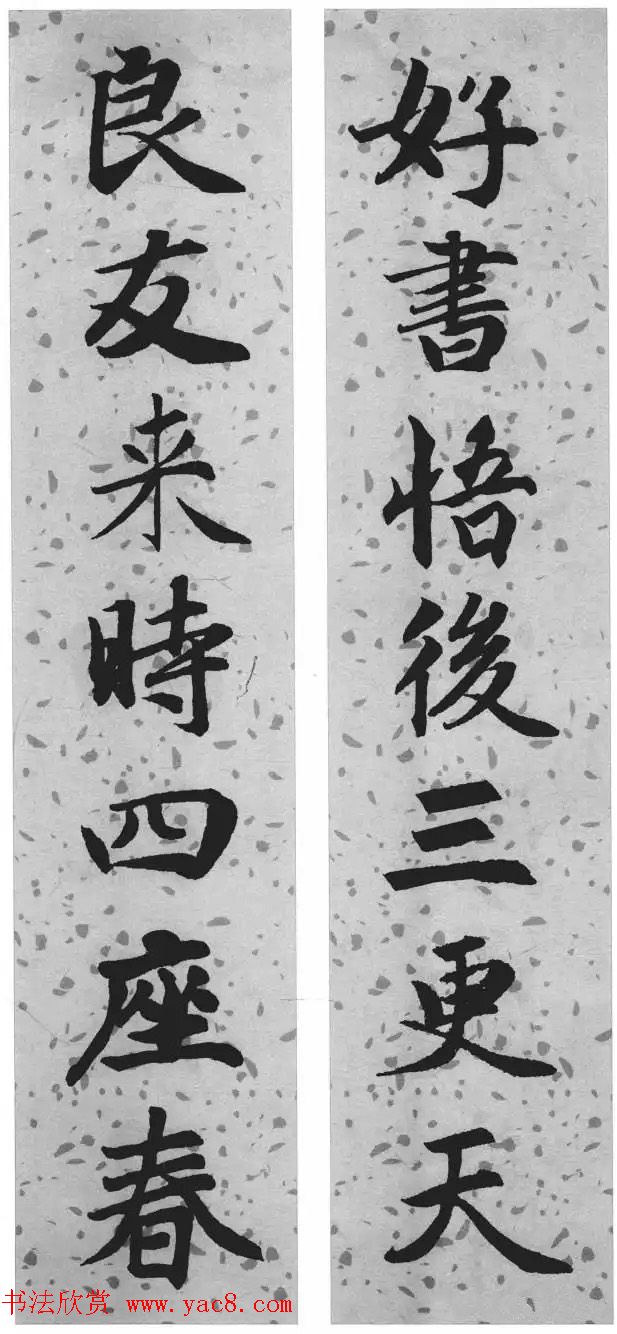 好書悟後三更天
良友来時四座春
书法欣赏 www.yac8.com